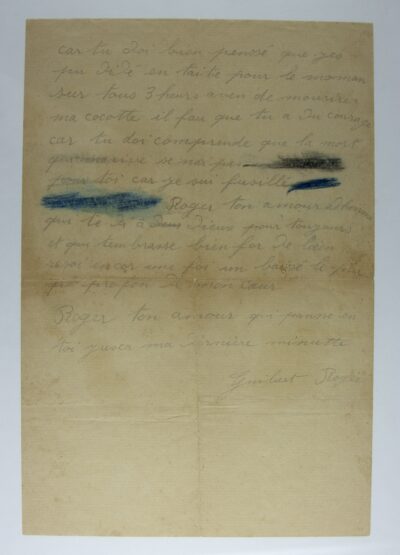 car tu doi bien pensé que ges
pu d'idé en taite pour le moman
sur tous 3 heurs aven de mourire
ma cocotte il fau que tu a du courage
car tu doi comprende que la mort
qui m'arive se nai pas
pour toi car je sui fusillé
Roger ton amour
qui te di a Dieus pour toujours
et qui tembrasse bien for de loin
resoi encor une foi un baisé le plus
pro profon de mon cœur
Roger ton amour qui panse en
toi jusca ma dernière minutte
Guilbert Roger